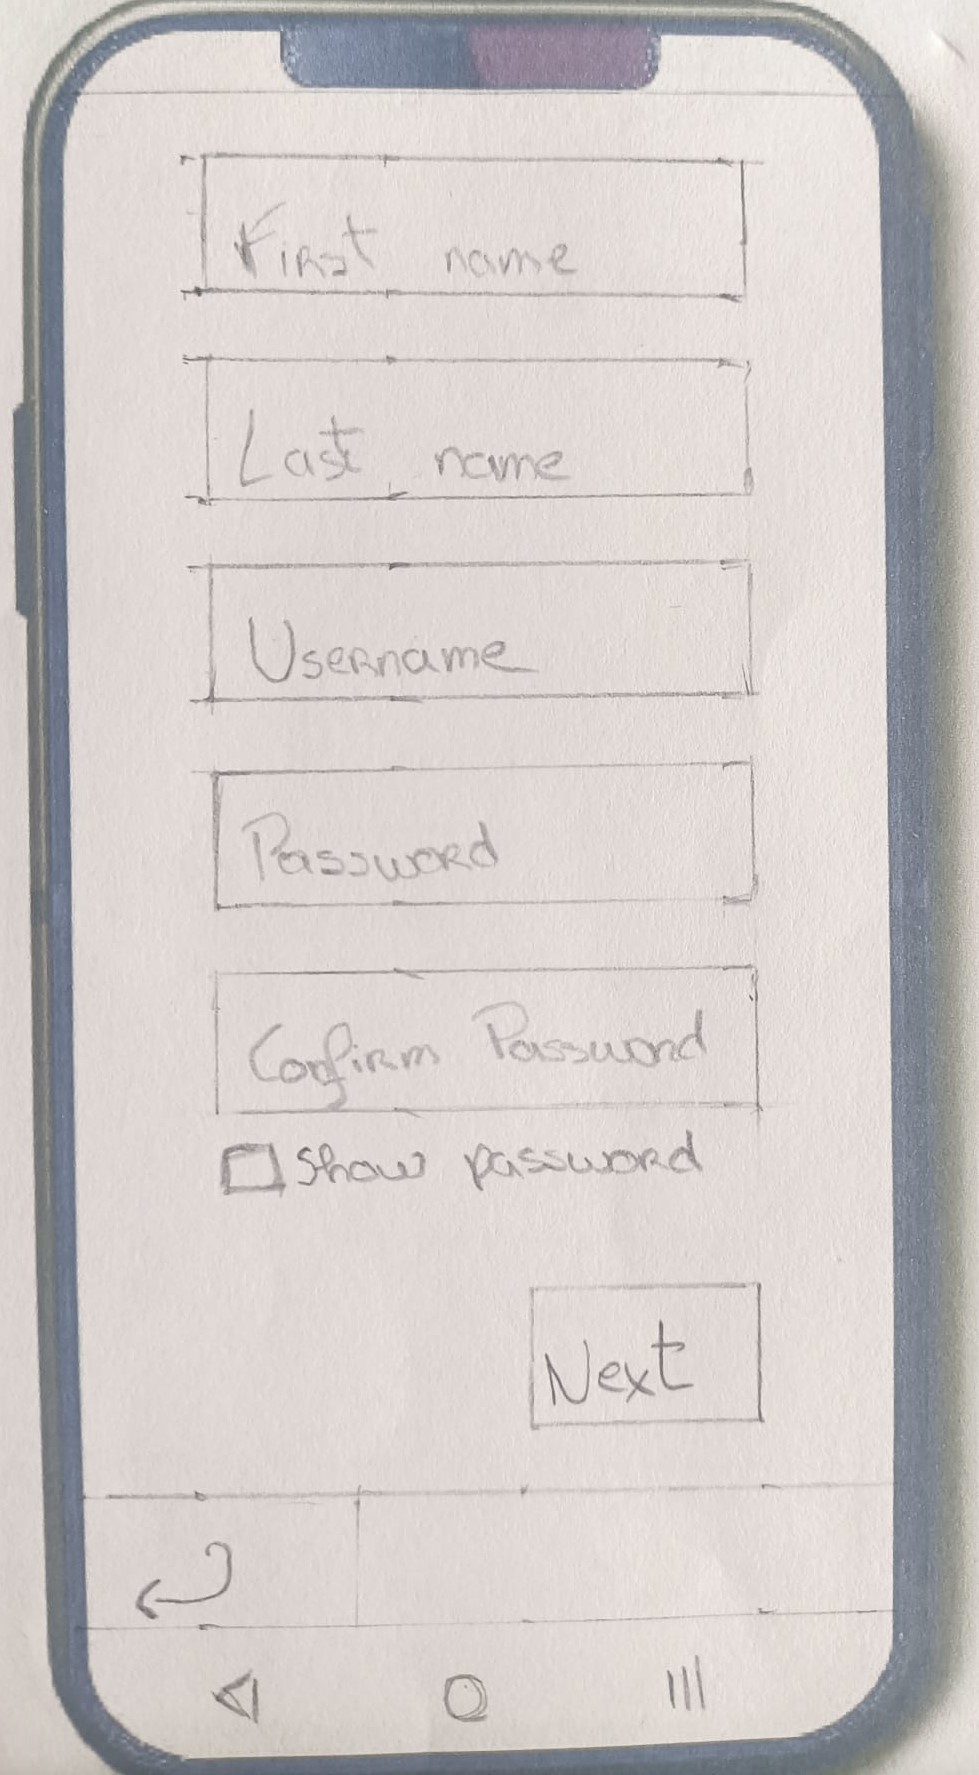 First name
Last name
Username
Password
Confirm Password
Show password
Next